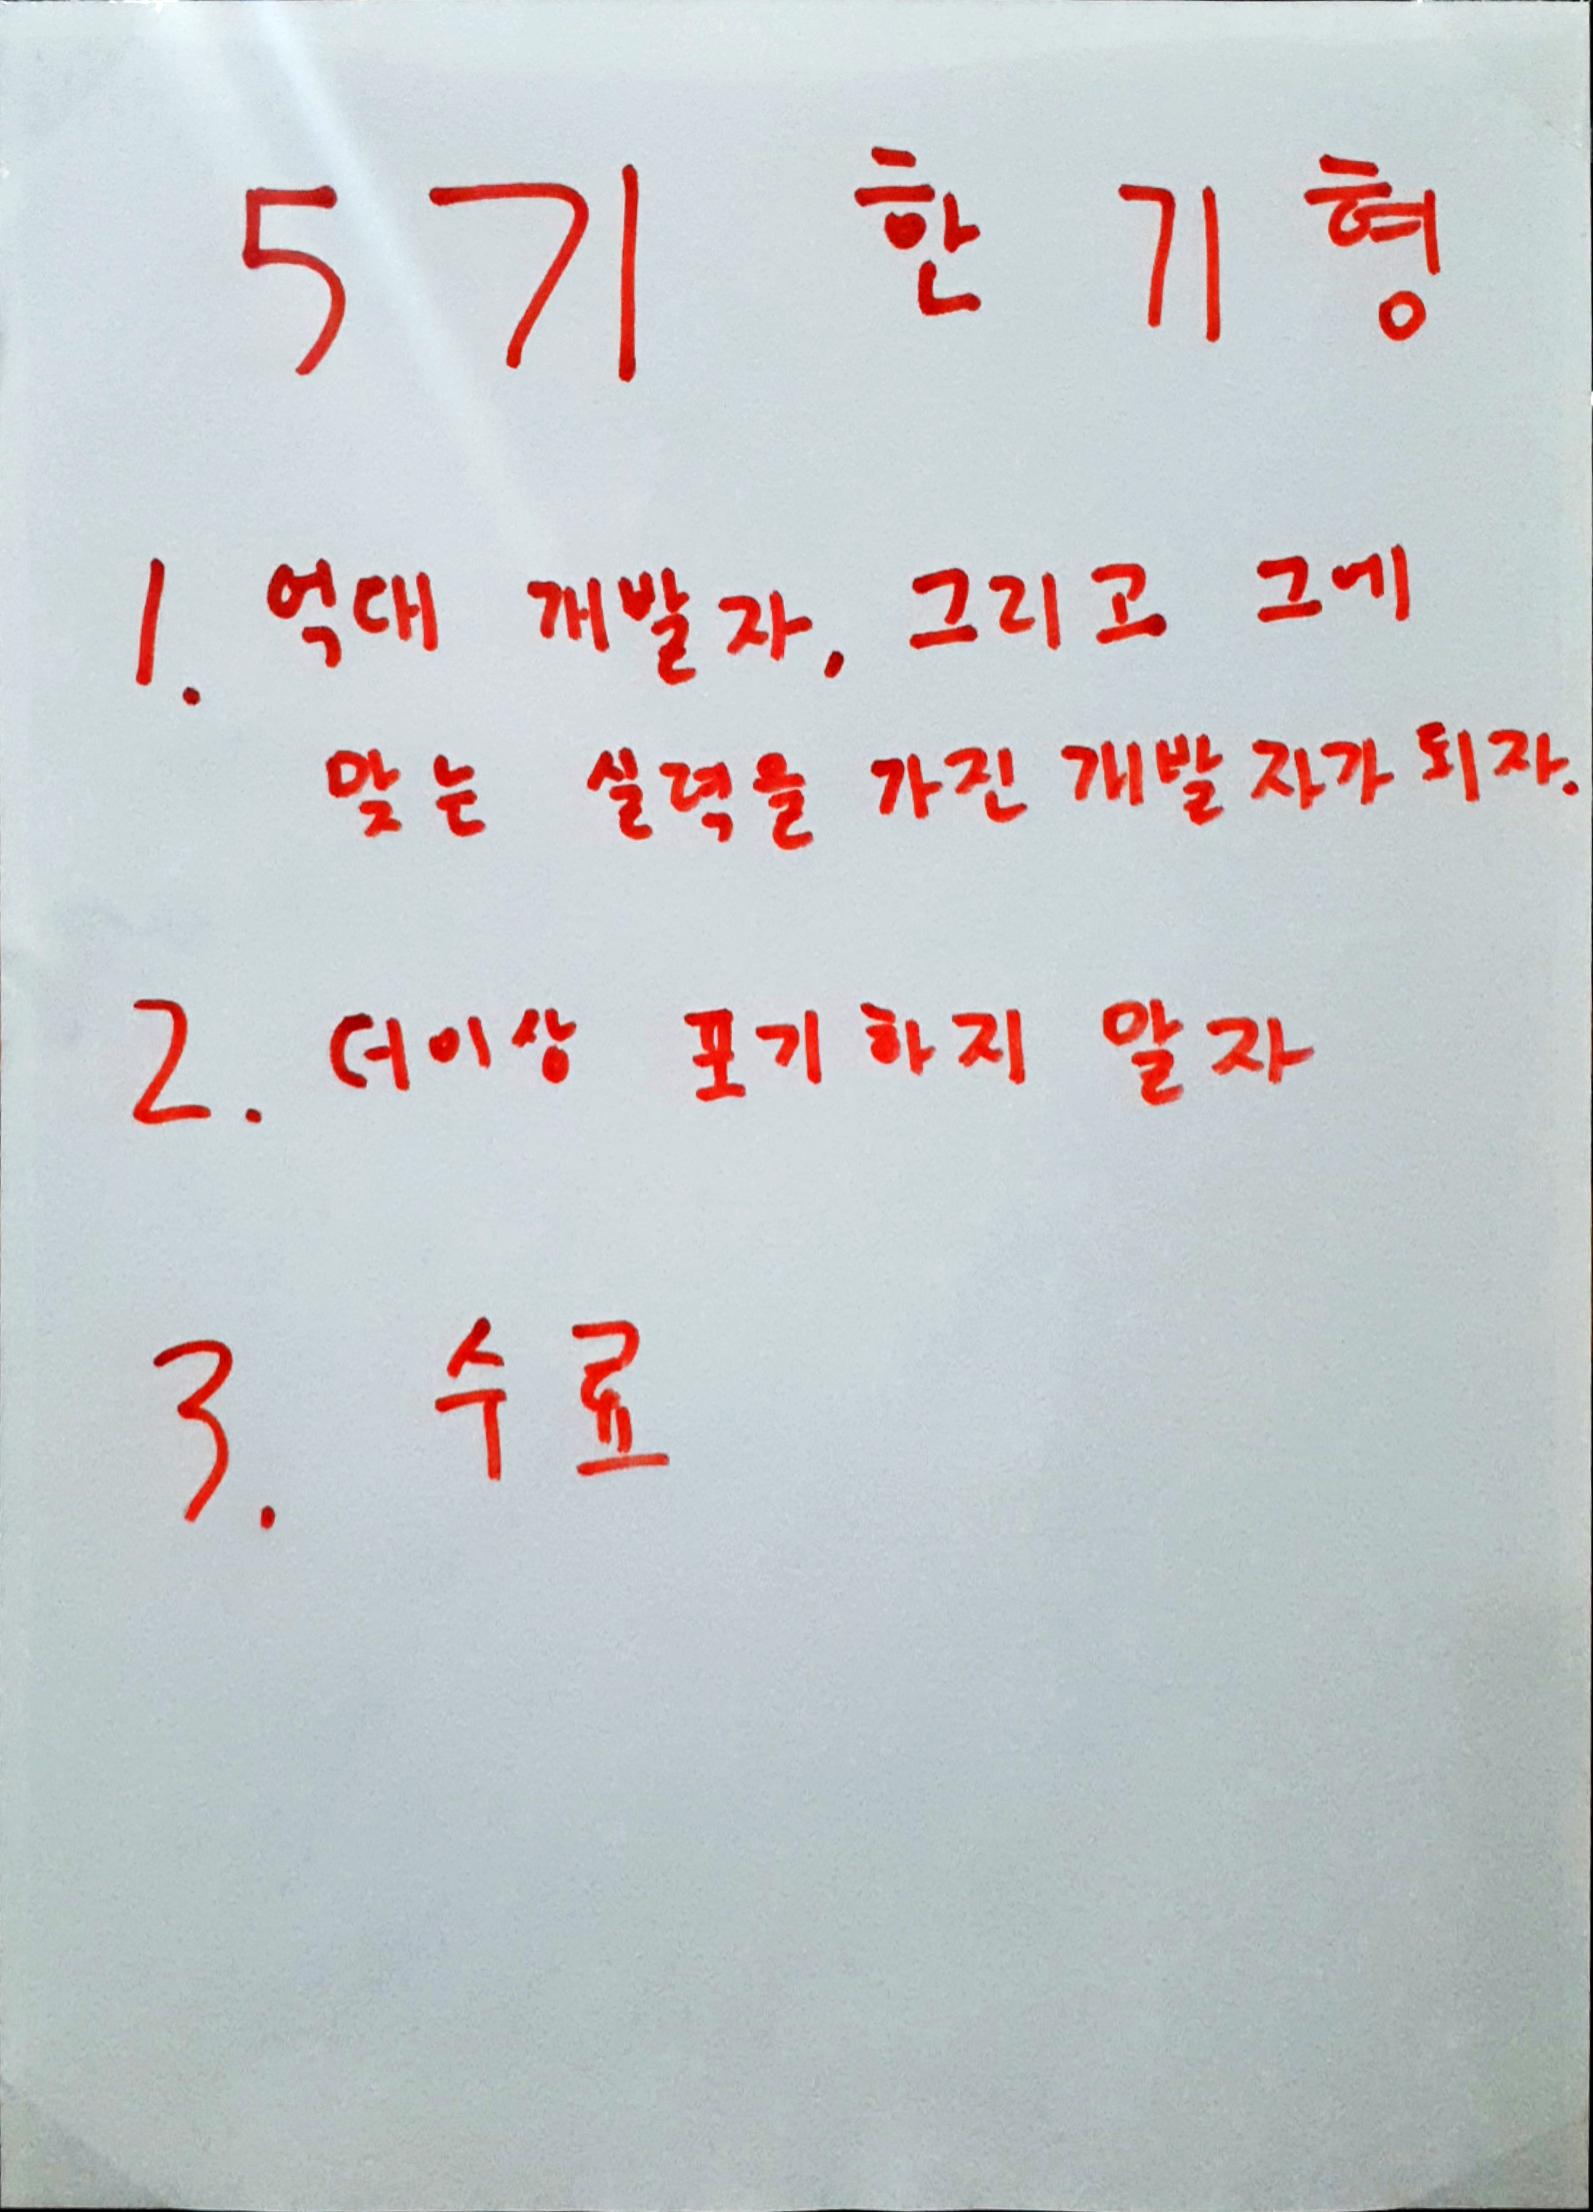 5기 한기형
1. 억대 개발자, 그리고 그에
맞는 실력을 가진 개발자가 되자.
2. 더이상 포기하지 말자
3. 수료